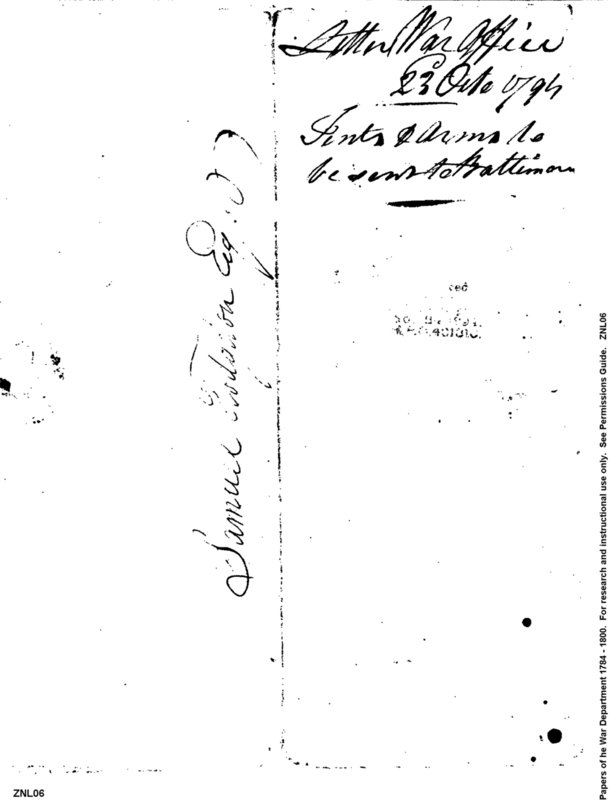 Letter War Office
23 Octo 1794
Tents & Arms to
be sent to Baltimore
Samuel Hodgdon Esq:
ced
Papers of he War Department 1784 - 1800. For research and instructional use only. See Permissions Guide. ZNL06
ZNL06